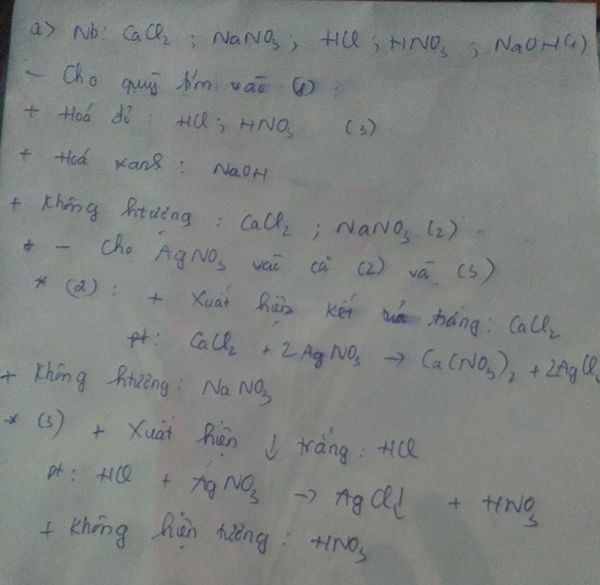 a> Nb: CaCl2 ; NaNO3 ; HCl ; HNO3 ; NaOH (1)
- Cho quỳ tím vào (1) :
+ Hoá đỏ : HCl ; HNO3 (3)
+ Hoá xanh : NaOH
+ Không htượng : CaCl2 ; NaNO3 (2)
* - Cho AgNO3 vào cả (2) và (3)
* (2) : + Xuất hiện kết tủa trắng : CaCl2
pt : CaCl2 + 2AgNO3 → Ca(NO3)2 + 2AgCl
+ Không htượng : NaNO3
* (3) + Xuất hiện ↓ trắng : HCl
pt : HCl + AgNO3 → AgCl↓ + HNO3
+ Không hiện tượng : HNO3